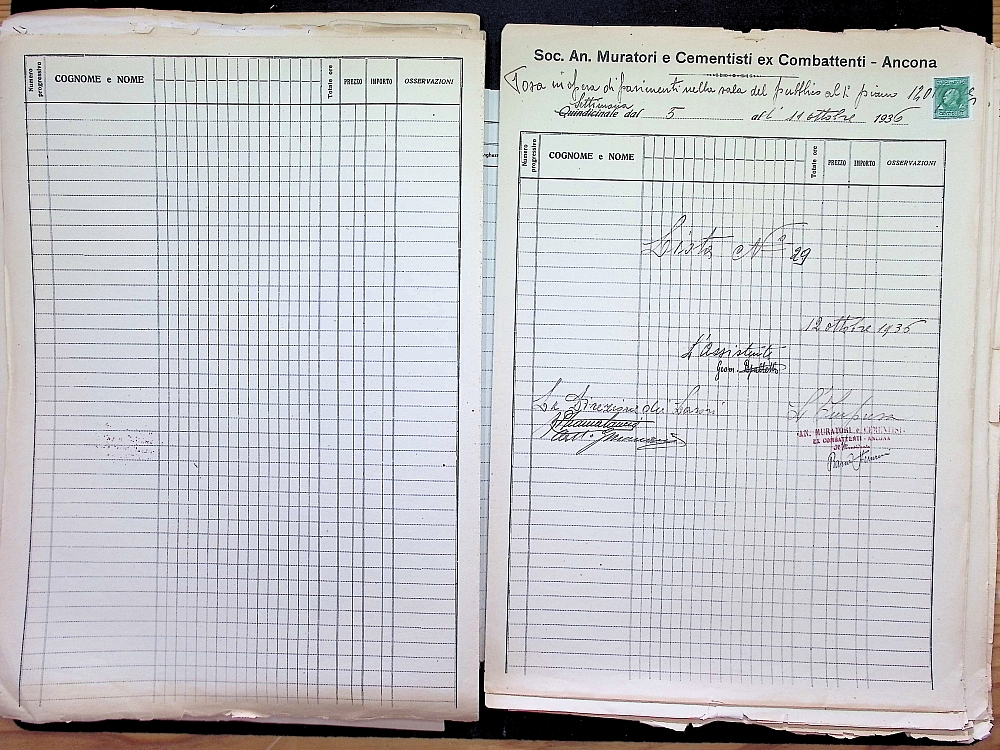 Numero progressivo
COGNOME e NOME
Totale ore
PREZZO
IMPORTO
OSSERVAZIONI
Soc. An. Muratori e Cementisti ex Combattenti - Ancona
Posa in opera di pavimenti nella sala del pubblico al 1° piano
Settimana
Quindicinale dal 5 al 11 ottobre 1936
Numero progressivo
COGNOME e NOME
Totale ore
PREZZO
IMPORTO
OSSERVAZIONI
Lista N° 29
12 ottobre 1936
L'Assistente
Giov.
La Direzione dei Lavori
L'Impresa
AN. MURATORI e CEMENTISTI
EX COMBATTENTI - ANCONA